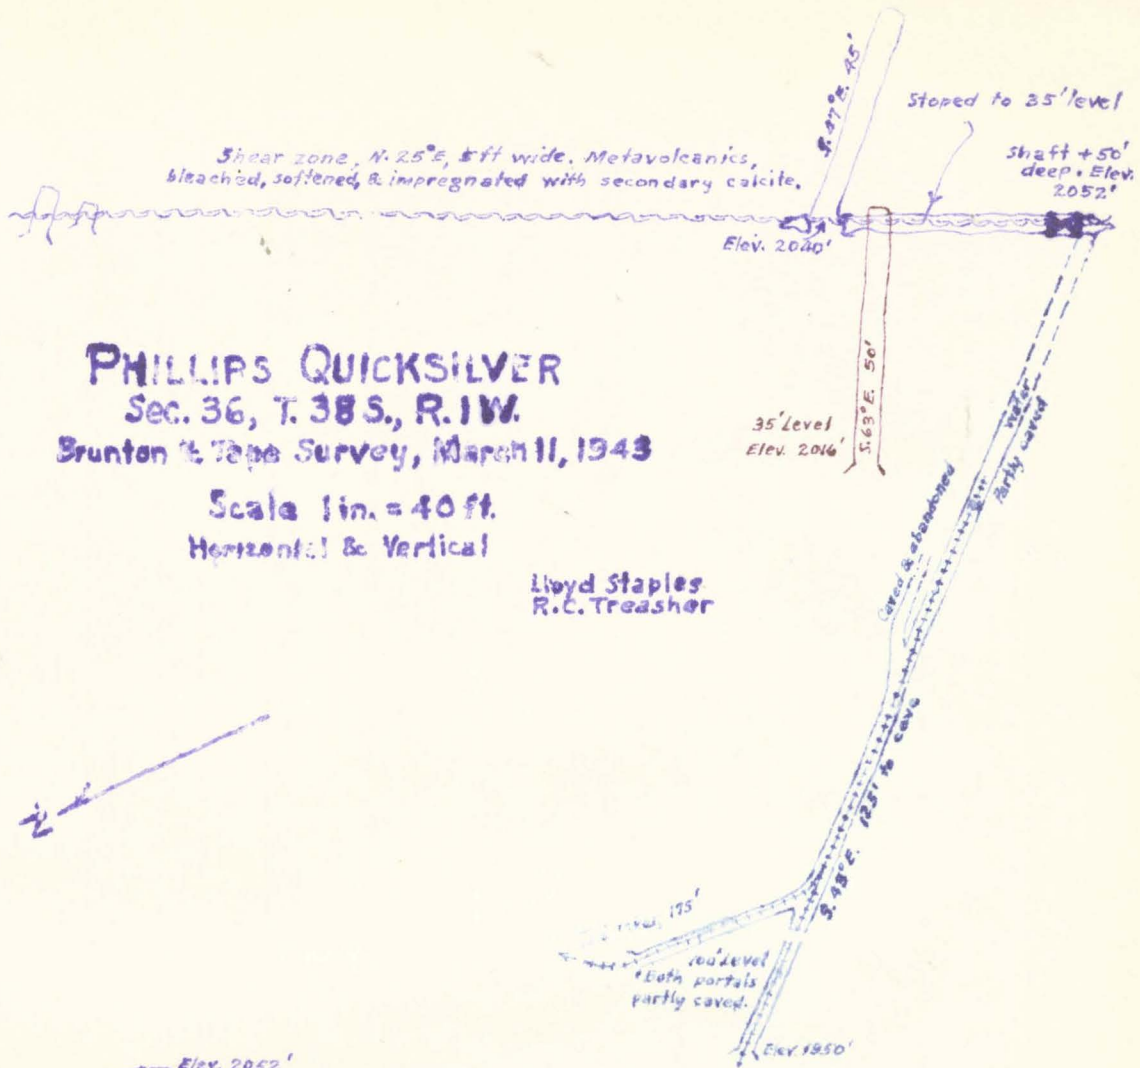 S. 47° E. 45'
Stoped to 35' level
Shear zone, N. 25° E, 5 ft wide. Metavolcanics,
bleached, softened, & impregnated with secondary calcite.
Shaft + 50'
deep. Elev.
2052'
Elev. 2040'
PHILLIPS QUICKSILVER
Sec. 36, T. 38 S., R. 1 W.
Brunton & Tape Survey, March 11, 1943
Scale 1 in. = 40 ft.
Horizontal & Vertical
Lloyd Staples
R.C. Treasher
35' Level
Elev. 2016'
S. 63° E. 50'
Water
Partly caved
Caved & abandoned
S. 43° E. 125' to cave
N
level, 175'
100' Level
Both portals
partly caved.
Elev. 1950'
Elev. 2052'